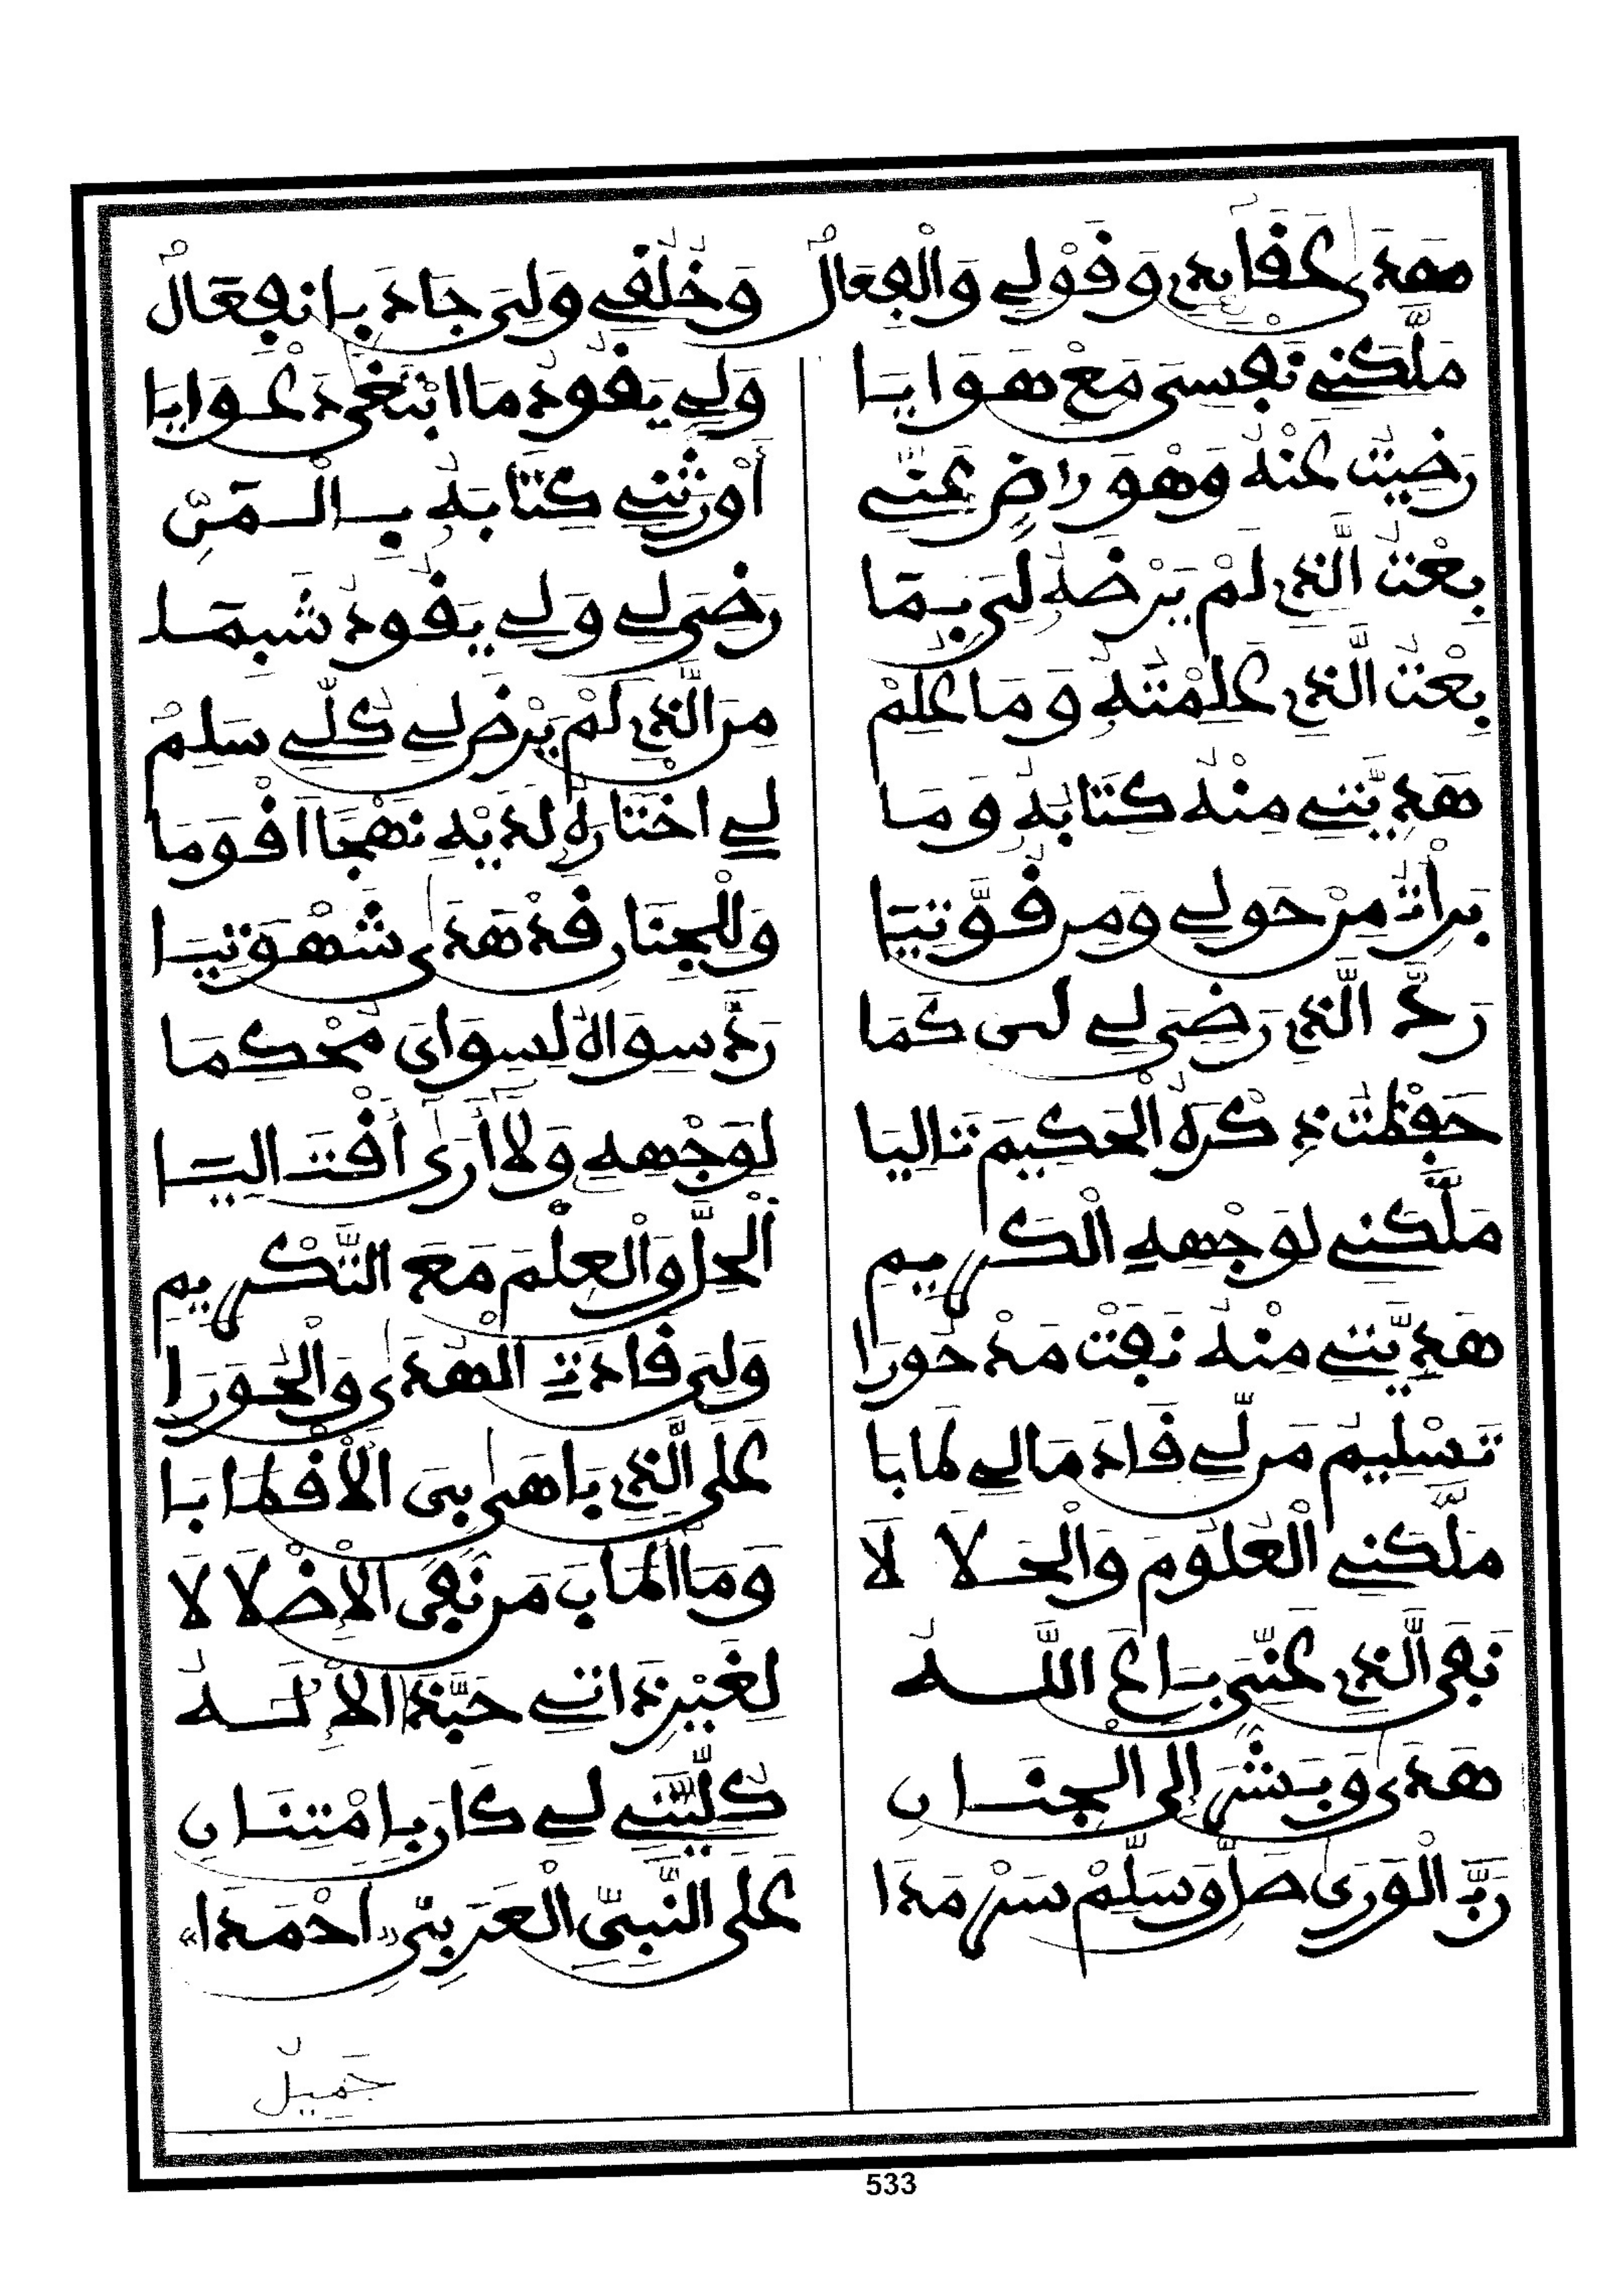 هَدَى عَقَائِدِي وَقَوْلِي وَالْفِعَالْ وَخُلُقِي وَلِيَ جَادَ بِانْفِعَالْ
مَلَّكَنِي نَفْسِي مَعْ هَوَايَا وَلِي يَقُودُ مَا ابْتَغَى دَعْوَايَا
رَضِيتُ عَنْهُ وَهْوَ رَاضٍ عَنِّي أَوْرَثَنِي كِتَابَهُ بِالْمَنِّ
بِعْتُ الَّذِي لَمْ يَرْضَهُ لِي بِمَا رَضِيَ لِي وَلِي يَقُودُ شَبِمَا
بِعْتُ الَّذِي عَلِمْتُهُ وَمَا عُلِمْ مِنَ الَّذِي لَمْ يَرْضَ لِي كُلِّي سَلِمْ
هَدِيَّتِي مِنْهُ كِتَابُهُ وَمَا لِي اخْتَارَهُ لَدَيْهِ نَهْجًا أَقْوَمَا
بَرَأْتُ مِنْ حَوْلِي وَمِنْ قُوَّتِيَا وَلِلْجِنَانِ قَدْ هَدَى شَهْوَتِيَا
رَدَّ الَّذِي رَضِيَ لِي لِي كَمَا رَدَّ سِوَاهُ لِسِوَايَ مُحْكِمَا
حَفِظْتُ ذِكْرَهُ الْحَكِيمَ تَالِيَا لِوَجْهِهِ وَلَا أَرَى أَقْتَالِيَا
مَلَّكَنِي لِوَجْهِهِ الْكَرِيمِ الْحِلَّ وَالْعِلْمَ مَعَ التَّكْرِيمِ
هَدِيَّتِي مِنْهُ نَفَتْ مَدْحُورَا وَلِيَ قَادَتِ الْهُدَى وَالْحُورَا
تَسْلِيمُ مَنْ لِي قَادَ مَا لِي طَابَا عَلَى الَّذِي بَاهَى بِيَ الْأَقْطَابَا
مَلَّكَنِي الْعُلُومَ وَالْحَلَالَا وَمَا أَطَابَ مَنْ نَفَى الْإِضْلَالَا
نَفَى الَّذِي عَنِّي بَرَاعَ اللَّهُ لِغَيْرِ ذَاتِي حَبَّذَا الْإِلَهُ
هَدَى وَبَشَّرَ إِلَى الْجِنَانِ كُلِّيَّتِي لِي كَانَ بِامْتِنَانِ
رَبَّ الْوَرَى صَلِّ وَسَلِّمْ سَرْمَدَا عَلَى النَّبِيِّ الْعَرَبِيِّ «أَحْمَدَا»
جَمِيلُ
533